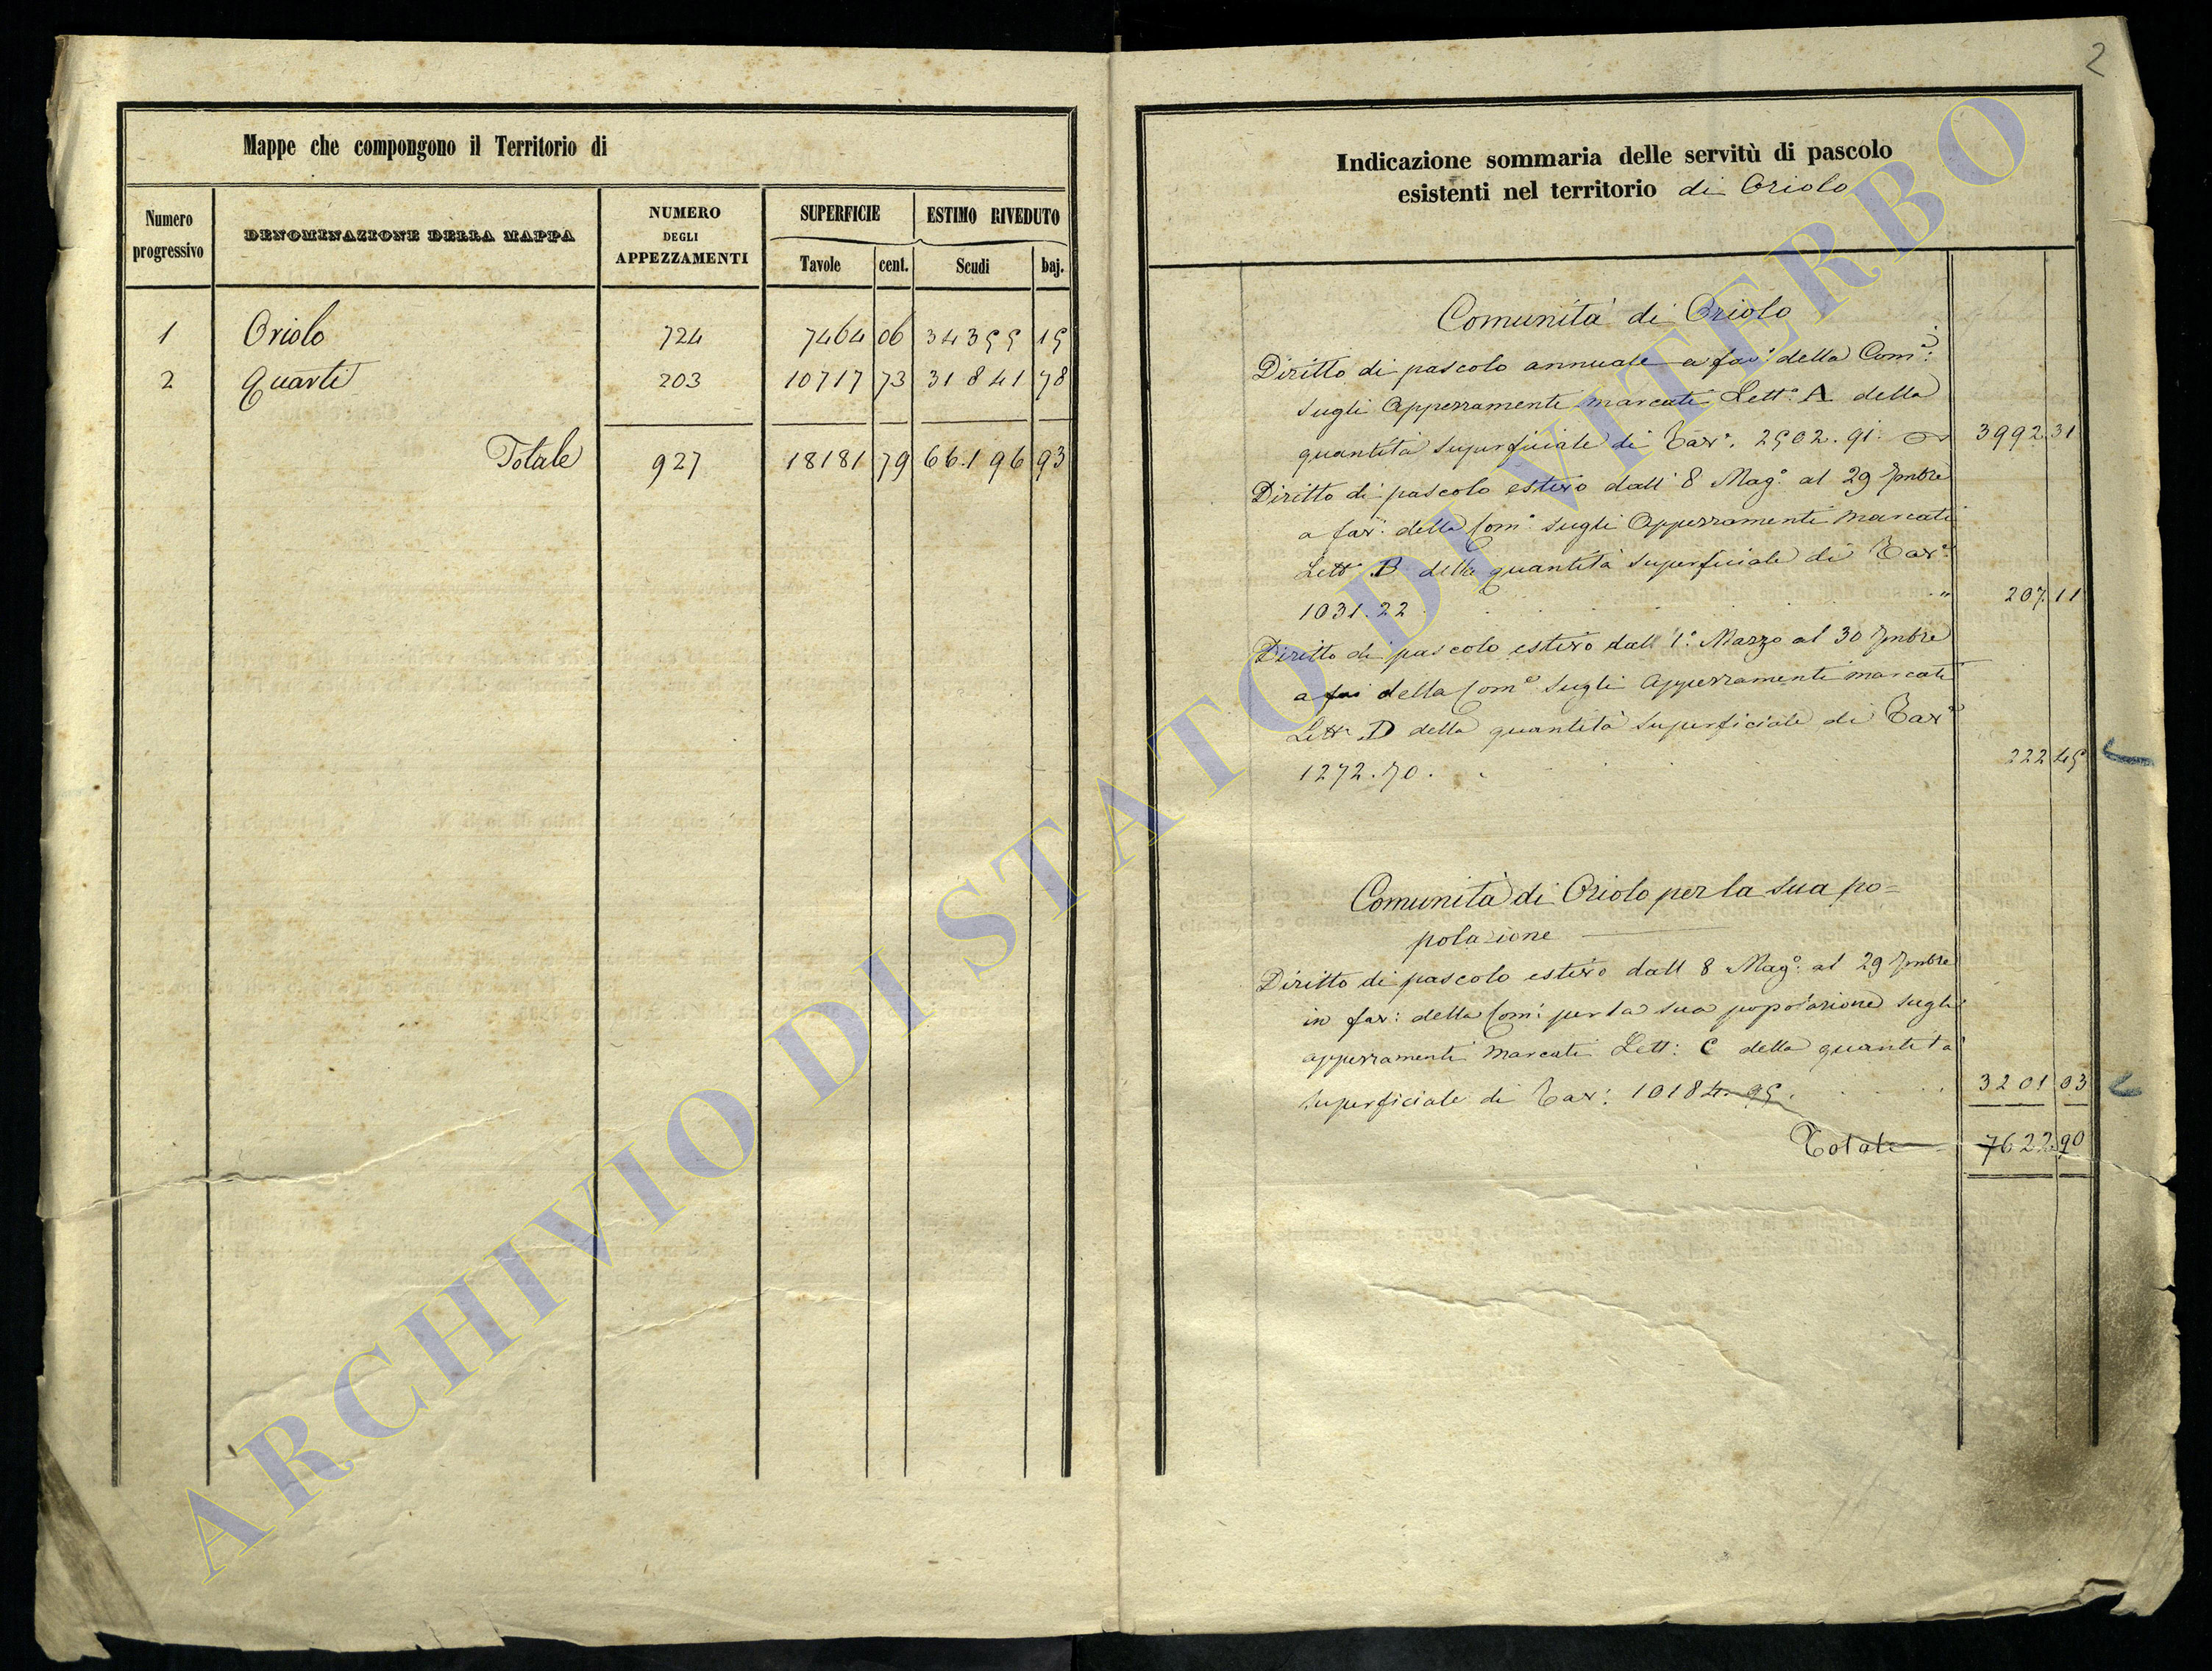 Mappe che compongono il Territorio di
Numero progressivo
DENOMINAZIONE DELLA MAPPA
NUMERO DEGLI APPEZZAMENTI
SUPERFICIE
ESTIMO RIVEDUTO
Tavole cent. Scudi baj.
1 Oriolo 724 7464 06 34355 15
2 Quarti 203 10717 73 31841 78
Totale 927 18181 79 66.196 93
2
Indicazione sommaria delle servitù di pascolo
esistenti nel territorio di Oriolo
Comunità di Oriolo
Diritto di pascolo annuale a fav: della Com:
sugli Appezzamenti marcati Lett: A della
quantità superficiale di Tav: 2502.91. 3992.31
Diritto di pascolo estivo dall' 8 Mag:o al 29 7mbre
a fav: della Com:e sugli Appezzamenti marcati
Lett: B della quantità superficiale di Tav:e
1031.22 . . . . . . . . " 207.11
Diritto di pascolo estivo dall 1:o Marzo al 30 7mbre
a fav della Com:e sugli appezzamenti marcati
Lett: D della quantità superficiale di Tav:e
1272.70. . . . . . 222 45
Comunità di Oriolo per la sua po=
polazione
Diritto di pascolo estivo dall 8 Mag:o al 29 7mbre
in fav: della Com: per la sua popolazione sugli
appezzamenti marcati Lett: C della quantità
superficiale di Tav: 10184.95. . . . 3201 03
Totale 7622.90
ARCHIVIO DI STATO DI VITERBO